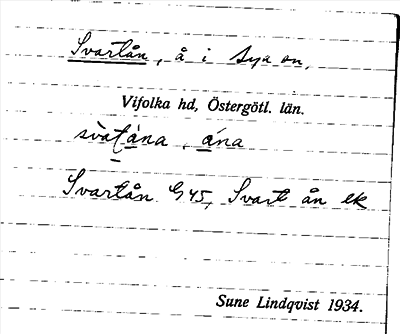 Svartån, å i Sya sn,
Vifolka hd, Östergötl. län.
svat́ána, ána
Svartån G45, Svart ån ek
Sune Lindqvist 1934.